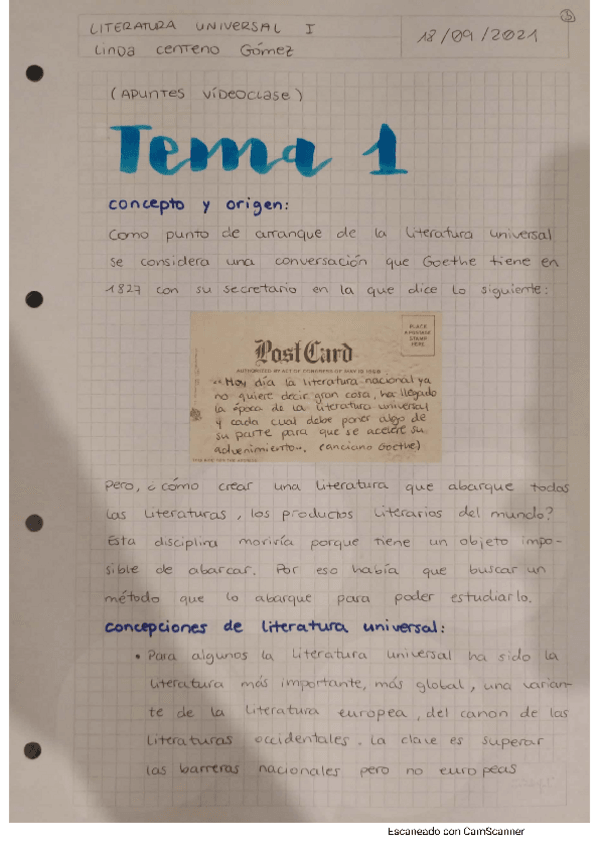 5
LITERATURA UNIVERSAL I
Linda Centeno Gómez
18/09/2021
(APUNTES VÍDEOCLASE)
Tema 1
concepto y origen:
Como punto de arranque de la literatura universal
se considera una conversación que Goethe tiene en
1827 con su secretario en la que dice lo siguiente:
PLACE
A POSTAGE
STAMP
HERE
Post Card
AUTHORIZED BY ACT OF CONGRESS OF MAY 19, 1898
"Hoy día la literatura nacional ya
no quiere decir gran cosa, ha llegado
la época de la literatura universal
y cada cual debe poner algo de
su parte para que se acelere su
advenimiento". (anciano Goethe)
Pero, ¿cómo crear una literatura que abarque todas
las literaturas, los productos literarios del mundo?
Esta disciplina moriría porque tiene un objeto impo-
sible de abarcar. Por eso había que buscar un
método que lo abarque para poder estudiarlo.
concepciones de literatura universal:
• Para algunos la literatura universal ha sido la
literatura más importante, más global, una varian-
te de la literatura europea, del canon de las
literaturas occidentales. La clave es superar
las barreras nacionales pero no europeas
Escaneado con CamScanner